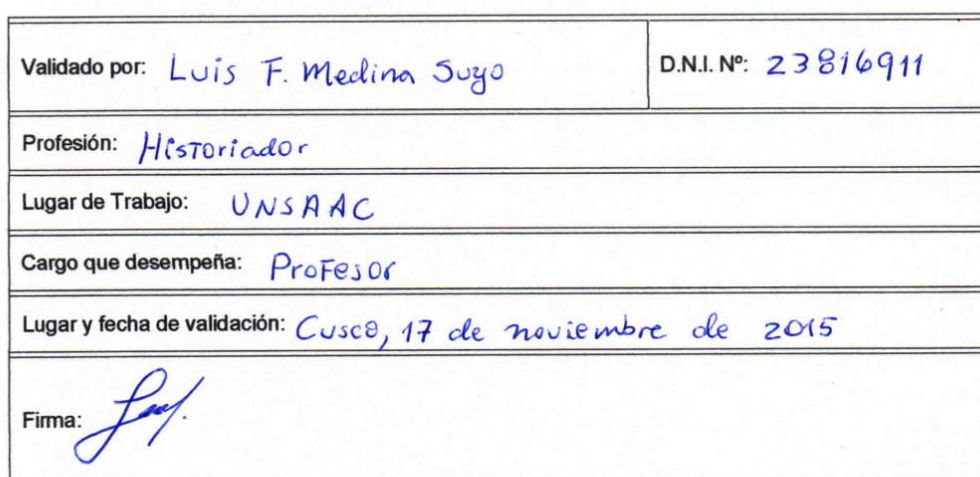 Validado por: Luis F. Medina Suyo D.N.I. Nº: 23816911
Profesión: Historiador
Lugar de Trabajo: UNSAAC
Cargo que desempeña: Profesor
Lugar y fecha de validación: Cusco, 17 de noviembre de 2015
Firma: